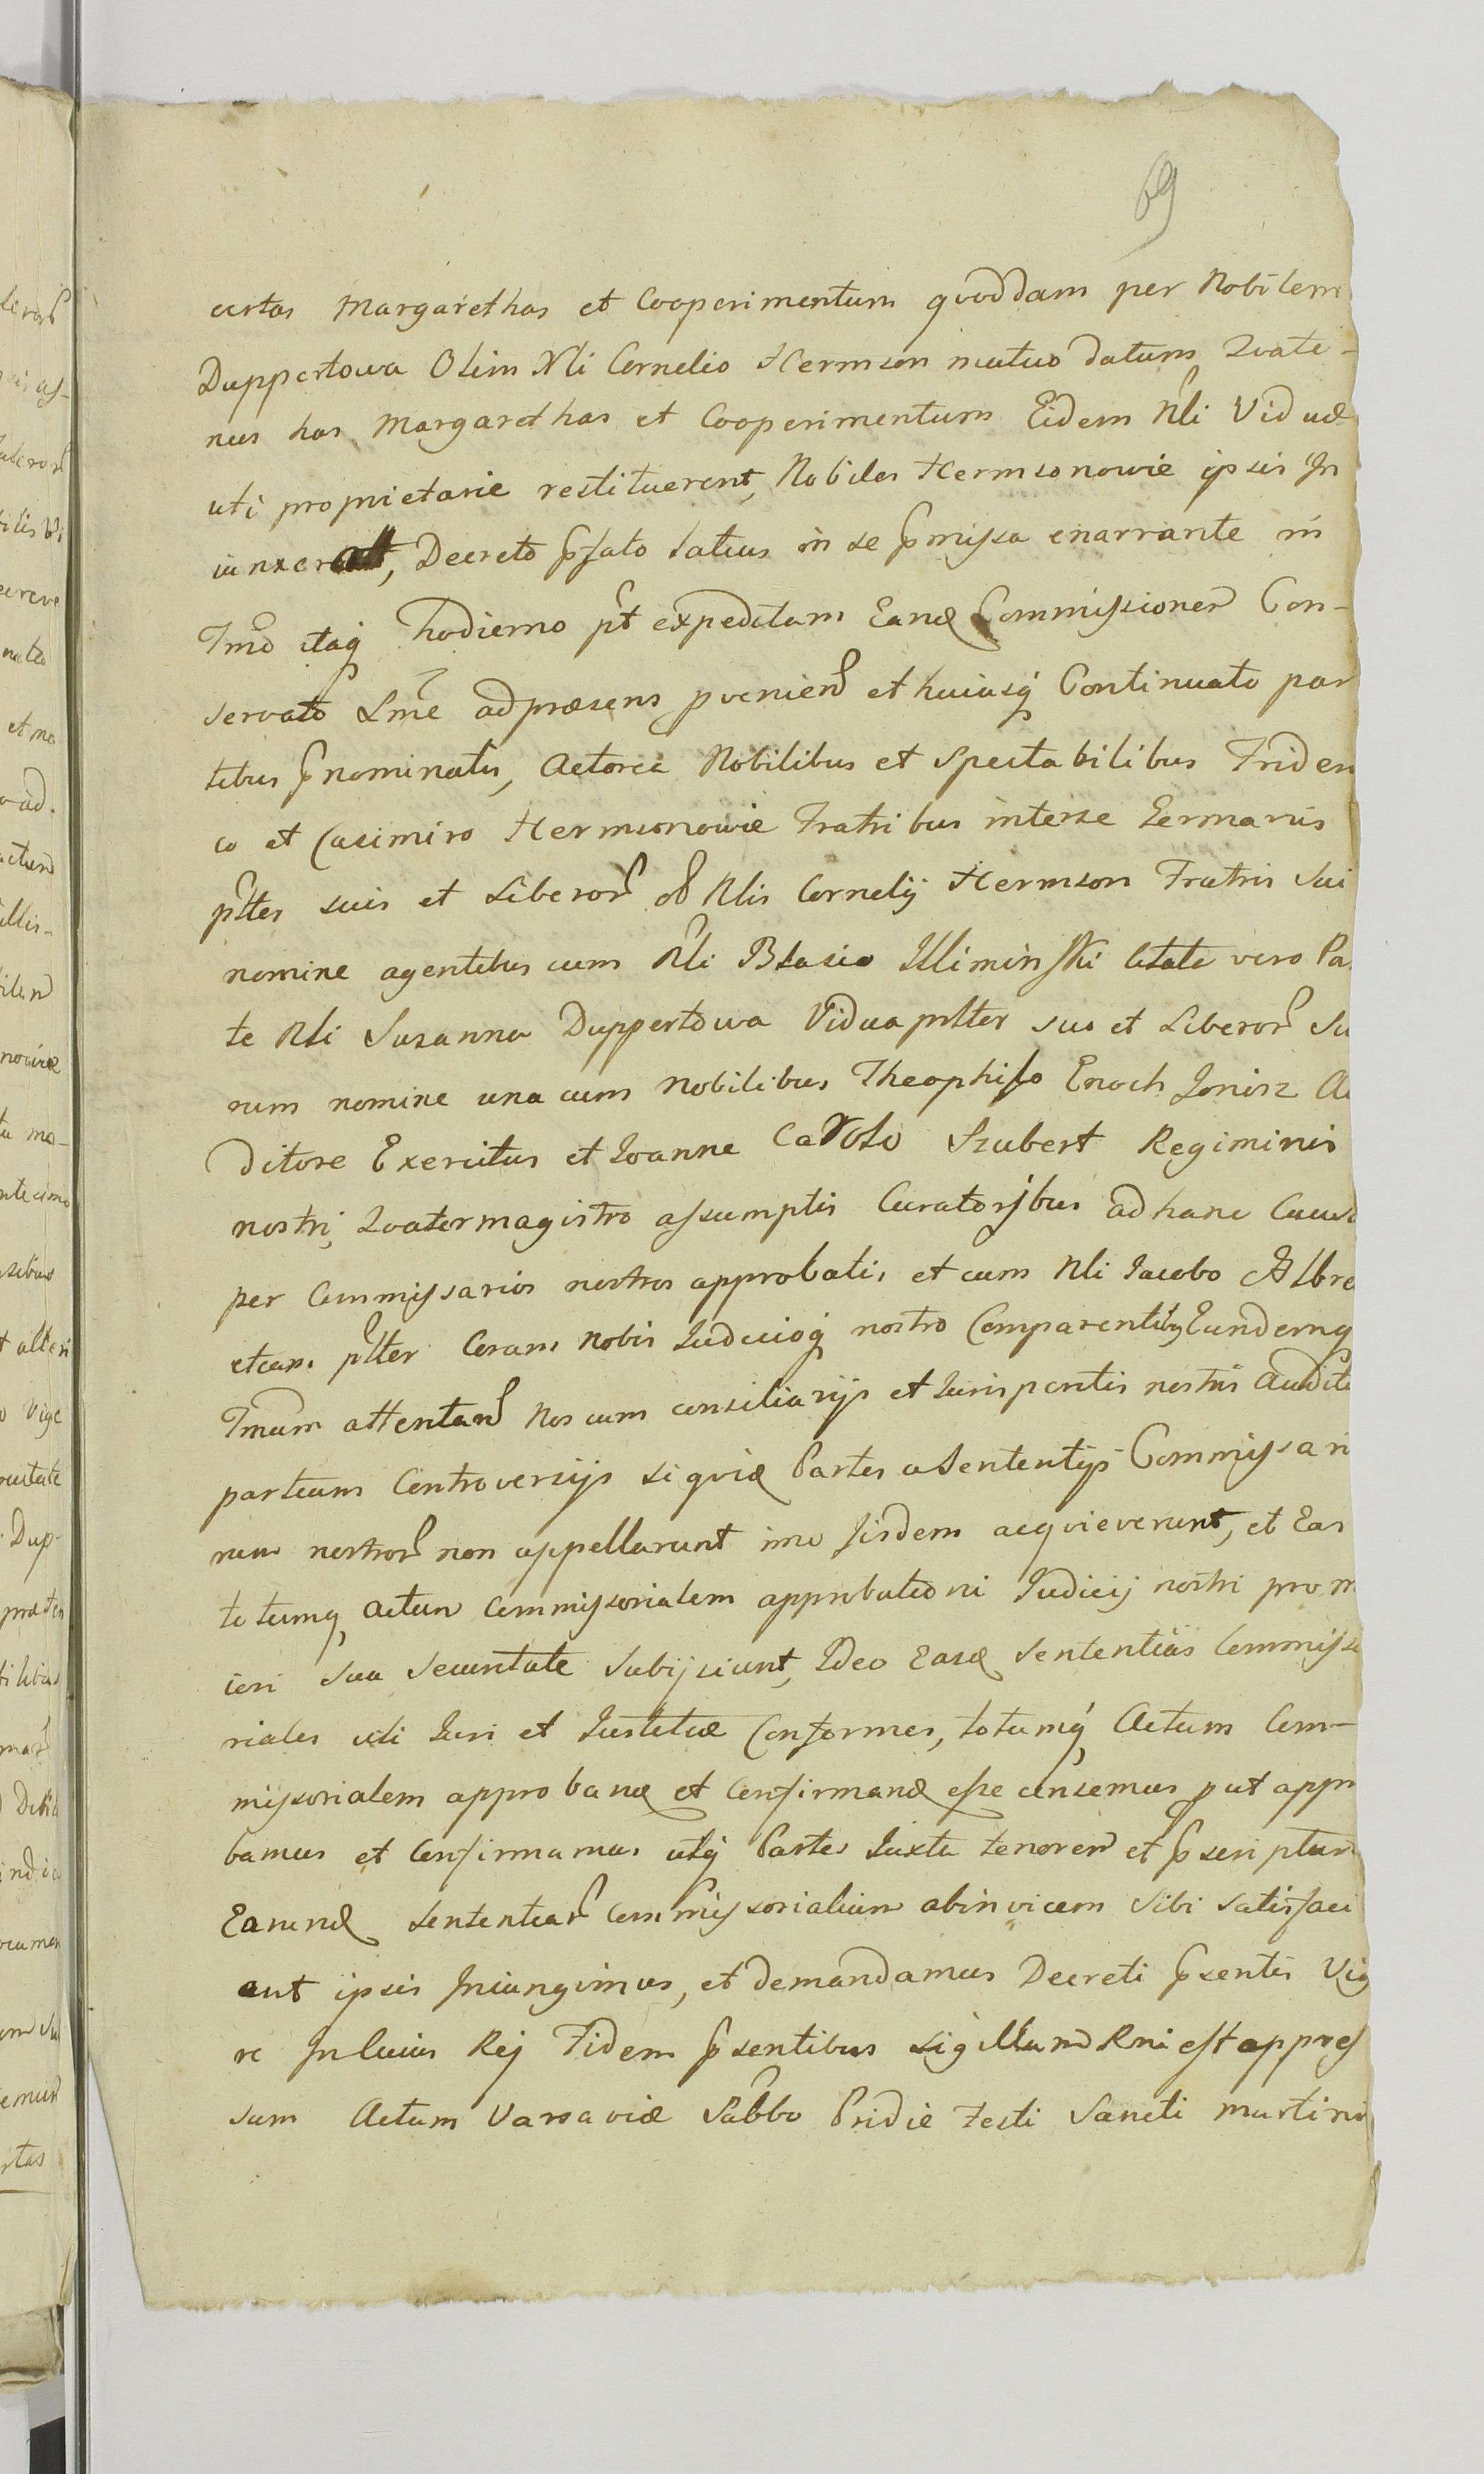 69
certas Margarethas et Cooperimentum quoddam per Nobilem
Duppertowa Olim Nli Cornelio Hermson mutuo datum, Quate-
nus has Margarethas et Cooperimentum Eidem Nli Viduæ
uti proprietarie restituerent, Nobiles Hermsonowie ipsis In
iunxerat, Decreto pfato latius in se pmissa enarrante in
Tmo itaq hodierno pt expeditam Eand Commissionem Con-
servato Lme ad præsens pveniend et huiusq Continuato par
tibus pnominatis, Actorea Nobilibus et Spectabilibus Frideri
co et Casimiro Hermsonowie Fratribus interse Germanis
plter suis et Liberor ol Nlis Cornelij Hermson Fratris Sui
nomine agentibus cum Nli Blasio Klimin ski Citata vero Pa
te Nli Susanna Duppertowa Vidua plter suo et Liberor Su
rum nomine una cum Nobilibus Theophilo Enoch Jonisz Au
ditore Exercitus et Joanne Carolo Szubert Regiminis
nostri Quatermagistro assumptis Curatoribus ad hanc Caus
per Commissarios nostros approbatis et cum Nli Jacobo Albre
etiam plter Coram nobis Judicioq nostro Comparentibq Eundemq
Tmum attentand Nos cum consiliarijs et Jurisperitis nostris Audit
partium Controversijs siquid Partes a Sententijs Commissari
rum nostror non appellarunt imo Jisdem acqvieverunt, et Eas
totumq Actum Commissorialem approbationi Judicij nostri pro m
iori sua securitate Subijciunt, Ideo Easd Sententias Commisso
riales uti Juri et Justitiæ Conformes, totumq Actum Com-
missorialem approband et Confirmand esse censemus put appro
bamus et Confirmamus utq Partes Juxta tenorem et pscriptum
Earund Sententiar Commissorialium abinvicem Sibi satisfaci
ant ipsis Iniungimus, et demandamus Decreti psentis Vig
re In Cuius Rej Fidem psentibus Sigillum Rni est appres
sum Actum Varsaviæ Sabbo Pridie Festi Sancti Martini